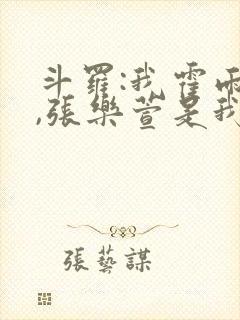 斗羅:我霍雨
,張樂萱是我
張藝謀